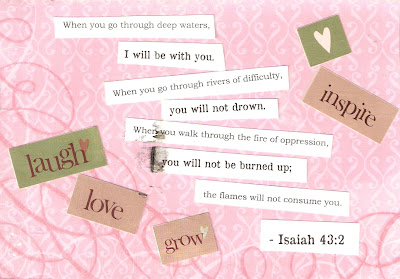 When you go through deep waters,
I will be with you.
When you go through rivers of difficulty,
you will not drown.
When you walk through the fire of oppression,
you will not be burned up;
the flames will not consume you.
- Isaiah 43:2
inspire
laugh
love
grow